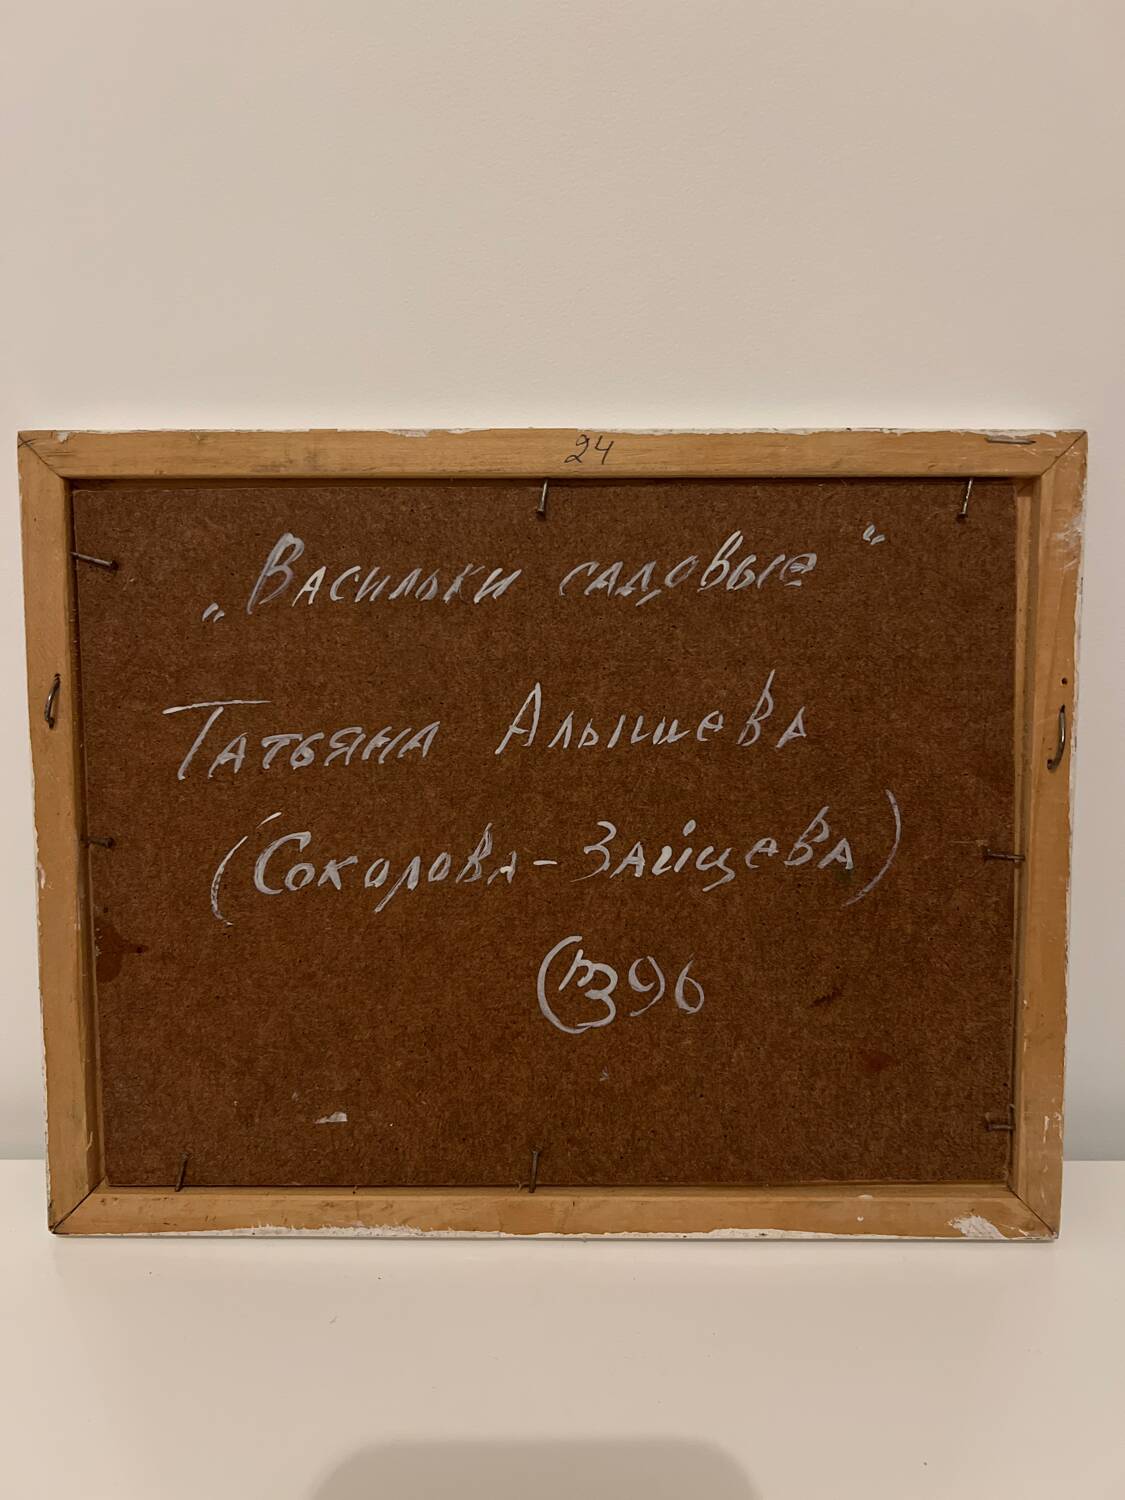 24
„Васильки садовые“
Татьяна Алышева
(Соколова-Зайцева)
96